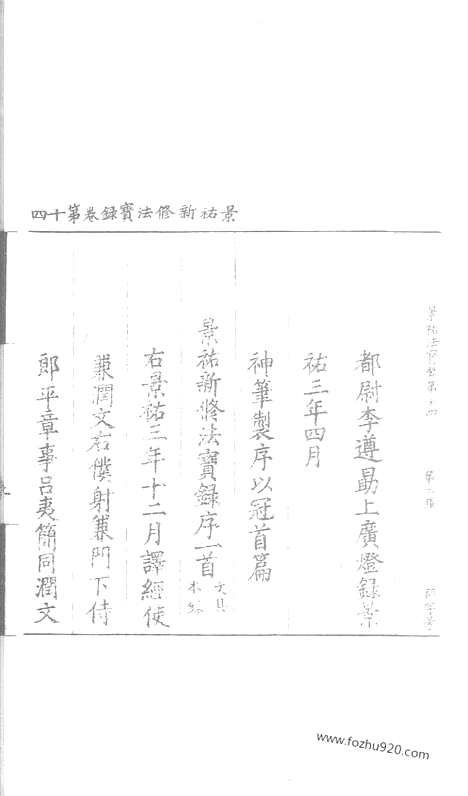 景祐新修法寶錄卷第十四
都尉李遵勗上廣燈錄景
祐三年四月
神筆製序以冠首篇
景祐新修法寶錄序一首 文具
本錄
右景祐三年十二月譯經使
兼潤文右僕射兼門下侍
郎平章事呂夷簡同潤文
www.fozhu920.com